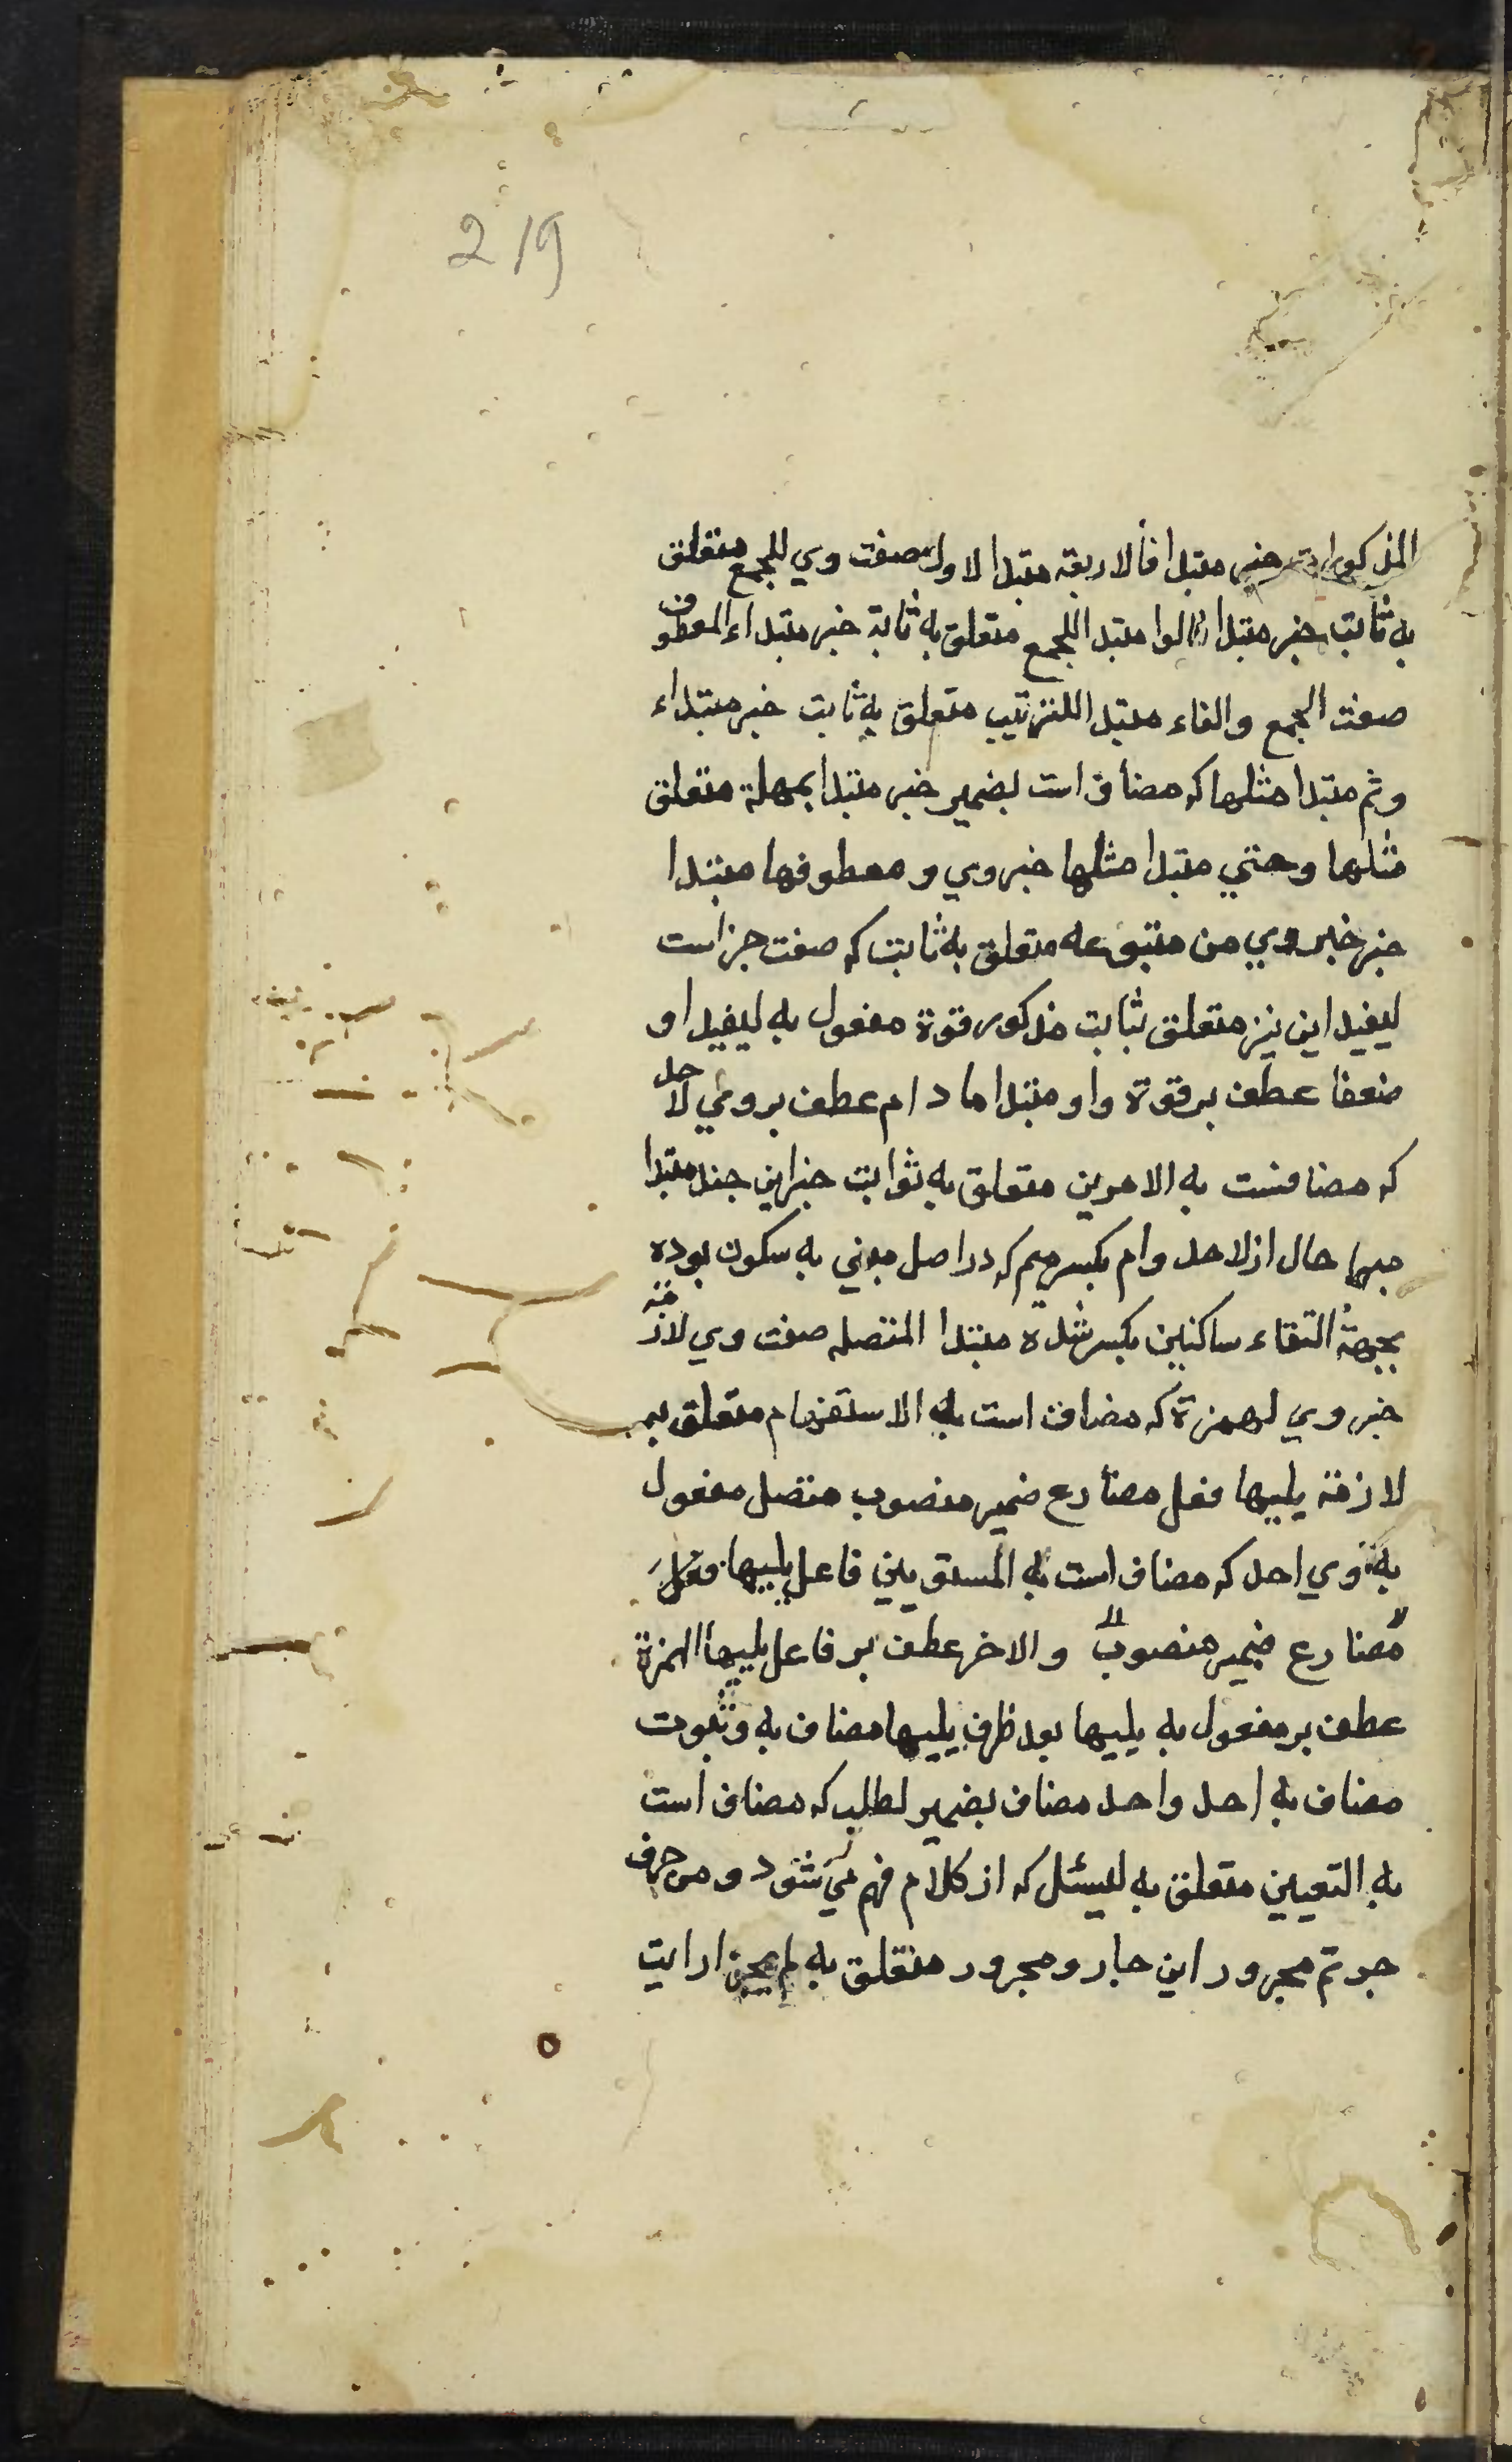 219
المذكورات خبر مبتدا فالاربعة مبتدا الاول صفت وي للجمع متعلق
به ثابت خبر مبتدا فالواو مبتدا للجمع متعلق به ثابة خبر مبتداء المعطوف
صفت الجمع والفاء مبتدا للترتيب متعلق به ثابت خبر مبتداء
وثم مبتدا مثلها كه مضاف است بضمير خبر مبتدا بمهلة متعلق
مثلها وحتي مبتدا مثلها خبر وي و معطوفها مبتدا
جزء خبر وي من متبوعه متعلق به ثابت كه صفت جزء است
ليفيد اين نيز متعلق بثابت مذكور قوة مفعول به ليفيد او
ضعفا عطف بر قوة واو مبتدا اما د ام عطف بروي لاحد
كه مضافست به الامرين متعلق به ثوابت خبر اين چند مبتدا
مبهما حال از لاحد وام بكسر ميم كه در اصل مبني به سكون بوده
بجهة التقاء ساكنين بكسر شده مبتدا المتصله صفت وي لازمة
خبر وي لهمزة كه مضاف است به الاستفهام متعلق به
لازمة يليها فعل مضارع ضمير منصوب متصل مفعول
به وي احد كه مضاف است به المستويين فاعل يليها فعل
مضارع ضمير منصوب والاخر عطف بر فاعل يليها الهمزة
عطف بر مفعول به يليها بعد ظرف يليها مضاف به وثبوت
مضاف به احد واحد مضاف بضمير لطلب كه مضاف است
به التعيين متعلق به ليسئل كه از كلام فهم مي شود و من حرف
جر ثم مجرور اين جار و مجرور متعلق به لم يجز ارايت